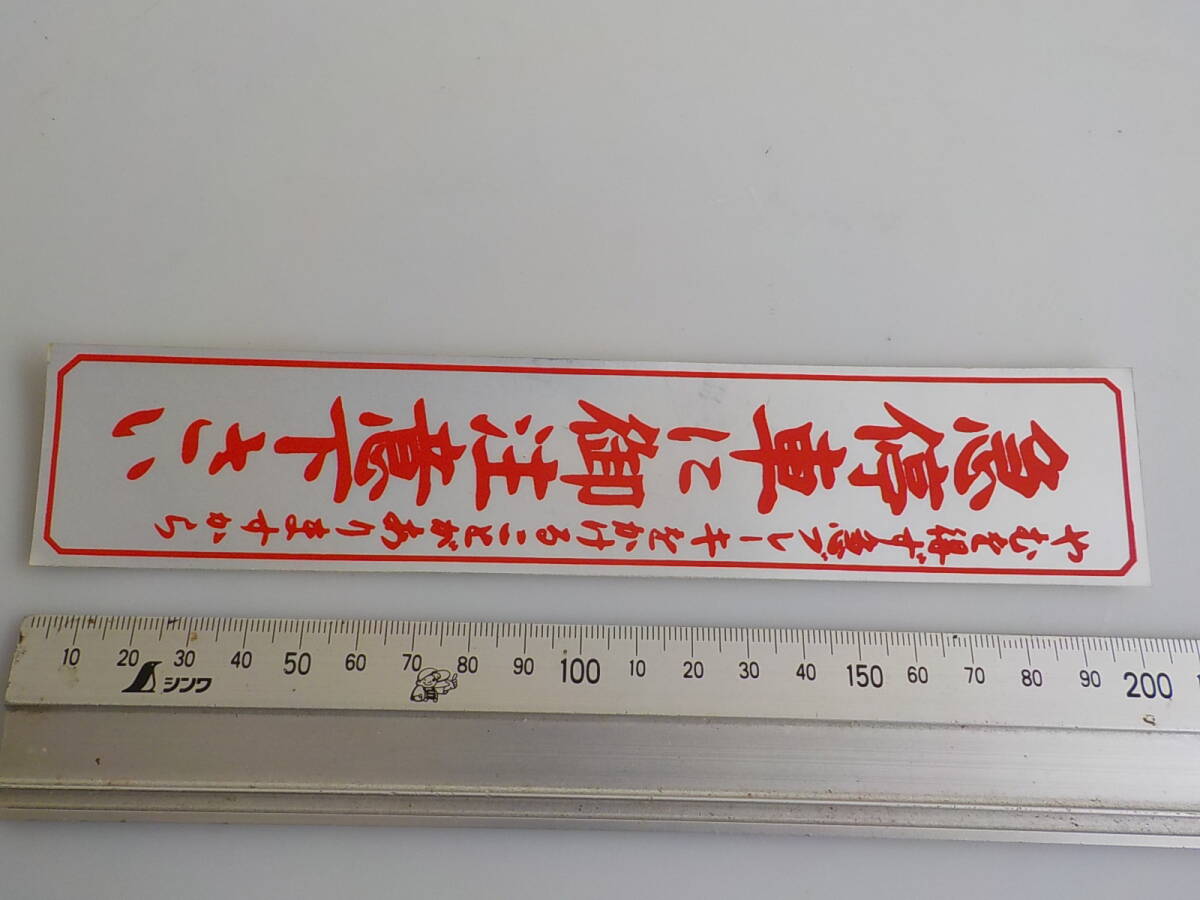 やむを得ず急ブレーキをかけることがありますから
急停車に御注意下さい
10 20 30 40 50 60 70 80 90 100 10 20 30 40 150 60 70 80 90 200
シンワ